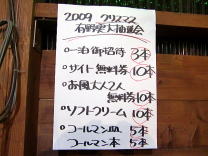 2009 クリスマス
有野実大抽選会
○一泊御招待 3本
○サイト無料券 10本
○お風呂大人2人
無料券 10本
○ソフトクリーム 10本
○コールマンLLL 5本
コールマン本 5本